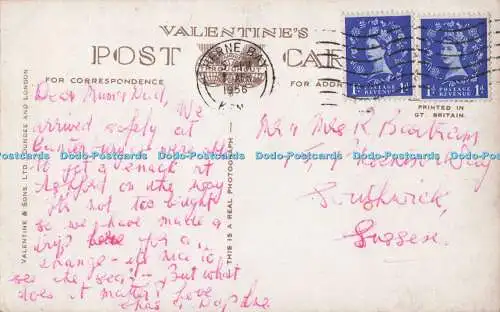 VALENTINE'S
POST CARD
FOR CORRESPONDENCE
FOR ADDR
HERNE BAY
1956
KENT
POSTAGE REVENUE
1D 1D
POSTAGE REVENUE
1D 1D
PRINTED IN
GT. BRITAIN.
VALENTINE & SONS. LTD. DUNDEE AND LONDON
THIS IS A REAL PHOTOGRAPH
Dear Mum & Dad, We
arrived safely at
were
to get a snack at
on the way
not too bright
so we have made a
trip here for a
change - its nice to
see the sea! - But what
does it matter? Love
Daphne
Mr & Mrs R
Way
Southwick,
Sussex.
Dodo-Postcards Dodo-Postcards Dodo-Postcards Dodo-Postcards